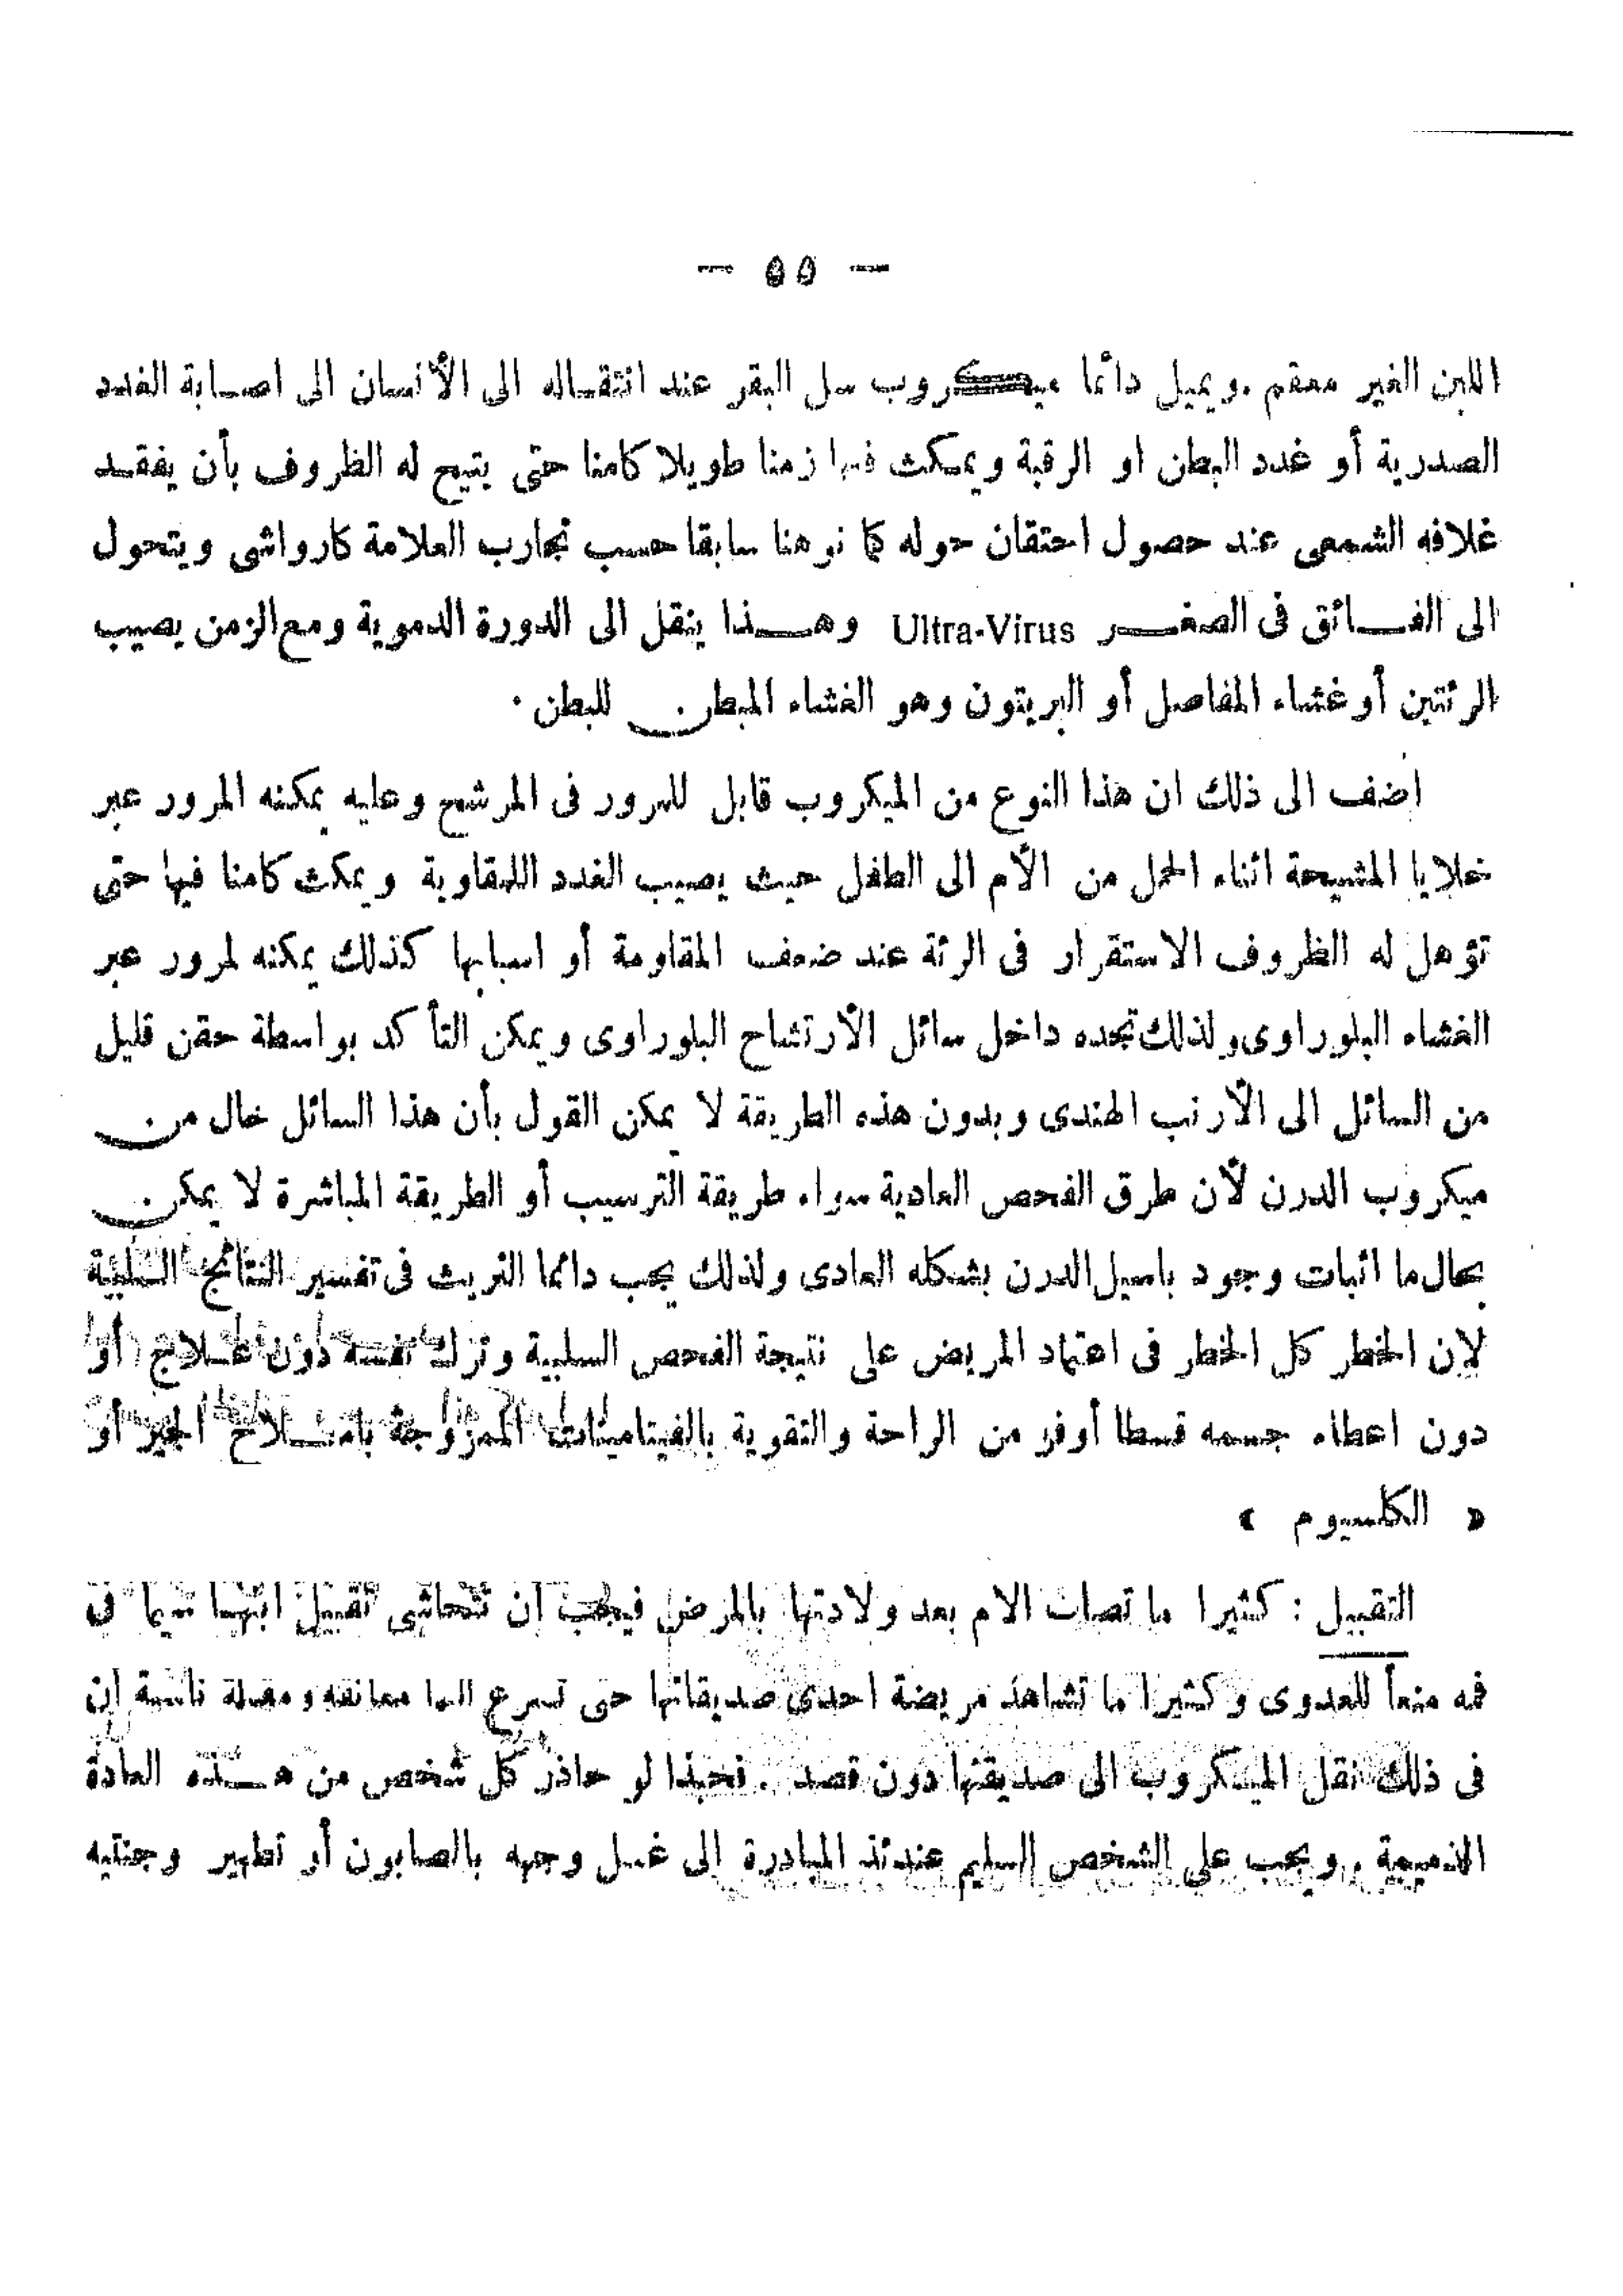 — ٥٥ —
اللبن الغير معقم .ويميل دائما ميكروب سل البقر عند انتقاله الى الأنسان الى اصابة الغدد
الصدرية أو غدد البطن او الرقبة ويمكث فيها زمنا طويلا كامنا حتى يتيح له الظروف بأن يفقد
غلافه الشمعى عند حصول احتقان حوله كما نوهنا سابقا حسب تجارب العلامة كارواشى ويتحول
الى الفائق فى الصغر Ultra-Virus وهذا ينقل الى الدورة الدموية ومع الزمن يصيب
الرئتين أو غشاء المفاصل أو البريتون وهو الغشاء المبطن للبطن .
اضف الى ذلك ان هذا النوع من الميكروب قابل للمرور فى المرشح وعليه يمكنه المرور عبر
خلايا المشيحة اثناء الحمل من الأم الى الطفل حيث يصيب الغدد اللمفاوية ويمكث كامنا فيها حتى
تؤهل له الظروف الاستقرار فى الرئة عند ضعف المقاومة أو اسبابها كذلك يمكنه لمرور عبر
الغشاء البلوراوى ولذلك تجده داخل سائل الأرتشاح البلوراوى ويمكن التأكد بواسطة حقن قليل
من السائل الى الأرنب الهندى وبدون هذه الطريقة لا يمكن القول بأن هذا السائل خال من
ميكروب الدرن لأن طرق الفحص العادية سواء طريقة الترسيب أو الطريقة المباشرة لا يمكن
بحال ما اثبات وجود باسيل الدرن بشكله العادى ولذلك يجب دائما التريث فى تفسير النتائج السلبية
لان الخطر كل الخطر فى اعتماد المريض على نتيجة الفحص السلبية وترك نفسه دون علاج أو
دون اعطاء جسمه قسطا أوفر من الراحة والتقوية بالفيتامينات الممزوجة باملاح الجير أو
« الكلسيوم »
التقبيل : كثيرا ما تصاب الام بعد ولادتها بالمرض فيجب ان تتحاشى تقبيل ابنها سيما فى
فمه منعاً للعدوى وكثيرا ما تشاهد مريضة احدى صديقاتها حتى تسرع اليها معانقه ومقبلة ناسية ان
فى ذلك نقل الميكروب الى صديقتها دون قصد . فحبذا لو حاذر كل شخص من هذه العادة
الذميمة . ويجب على الشخص السليم عندئذ المبادرة الى غسل وجهه بالصابون أو تطهير وجنتيه